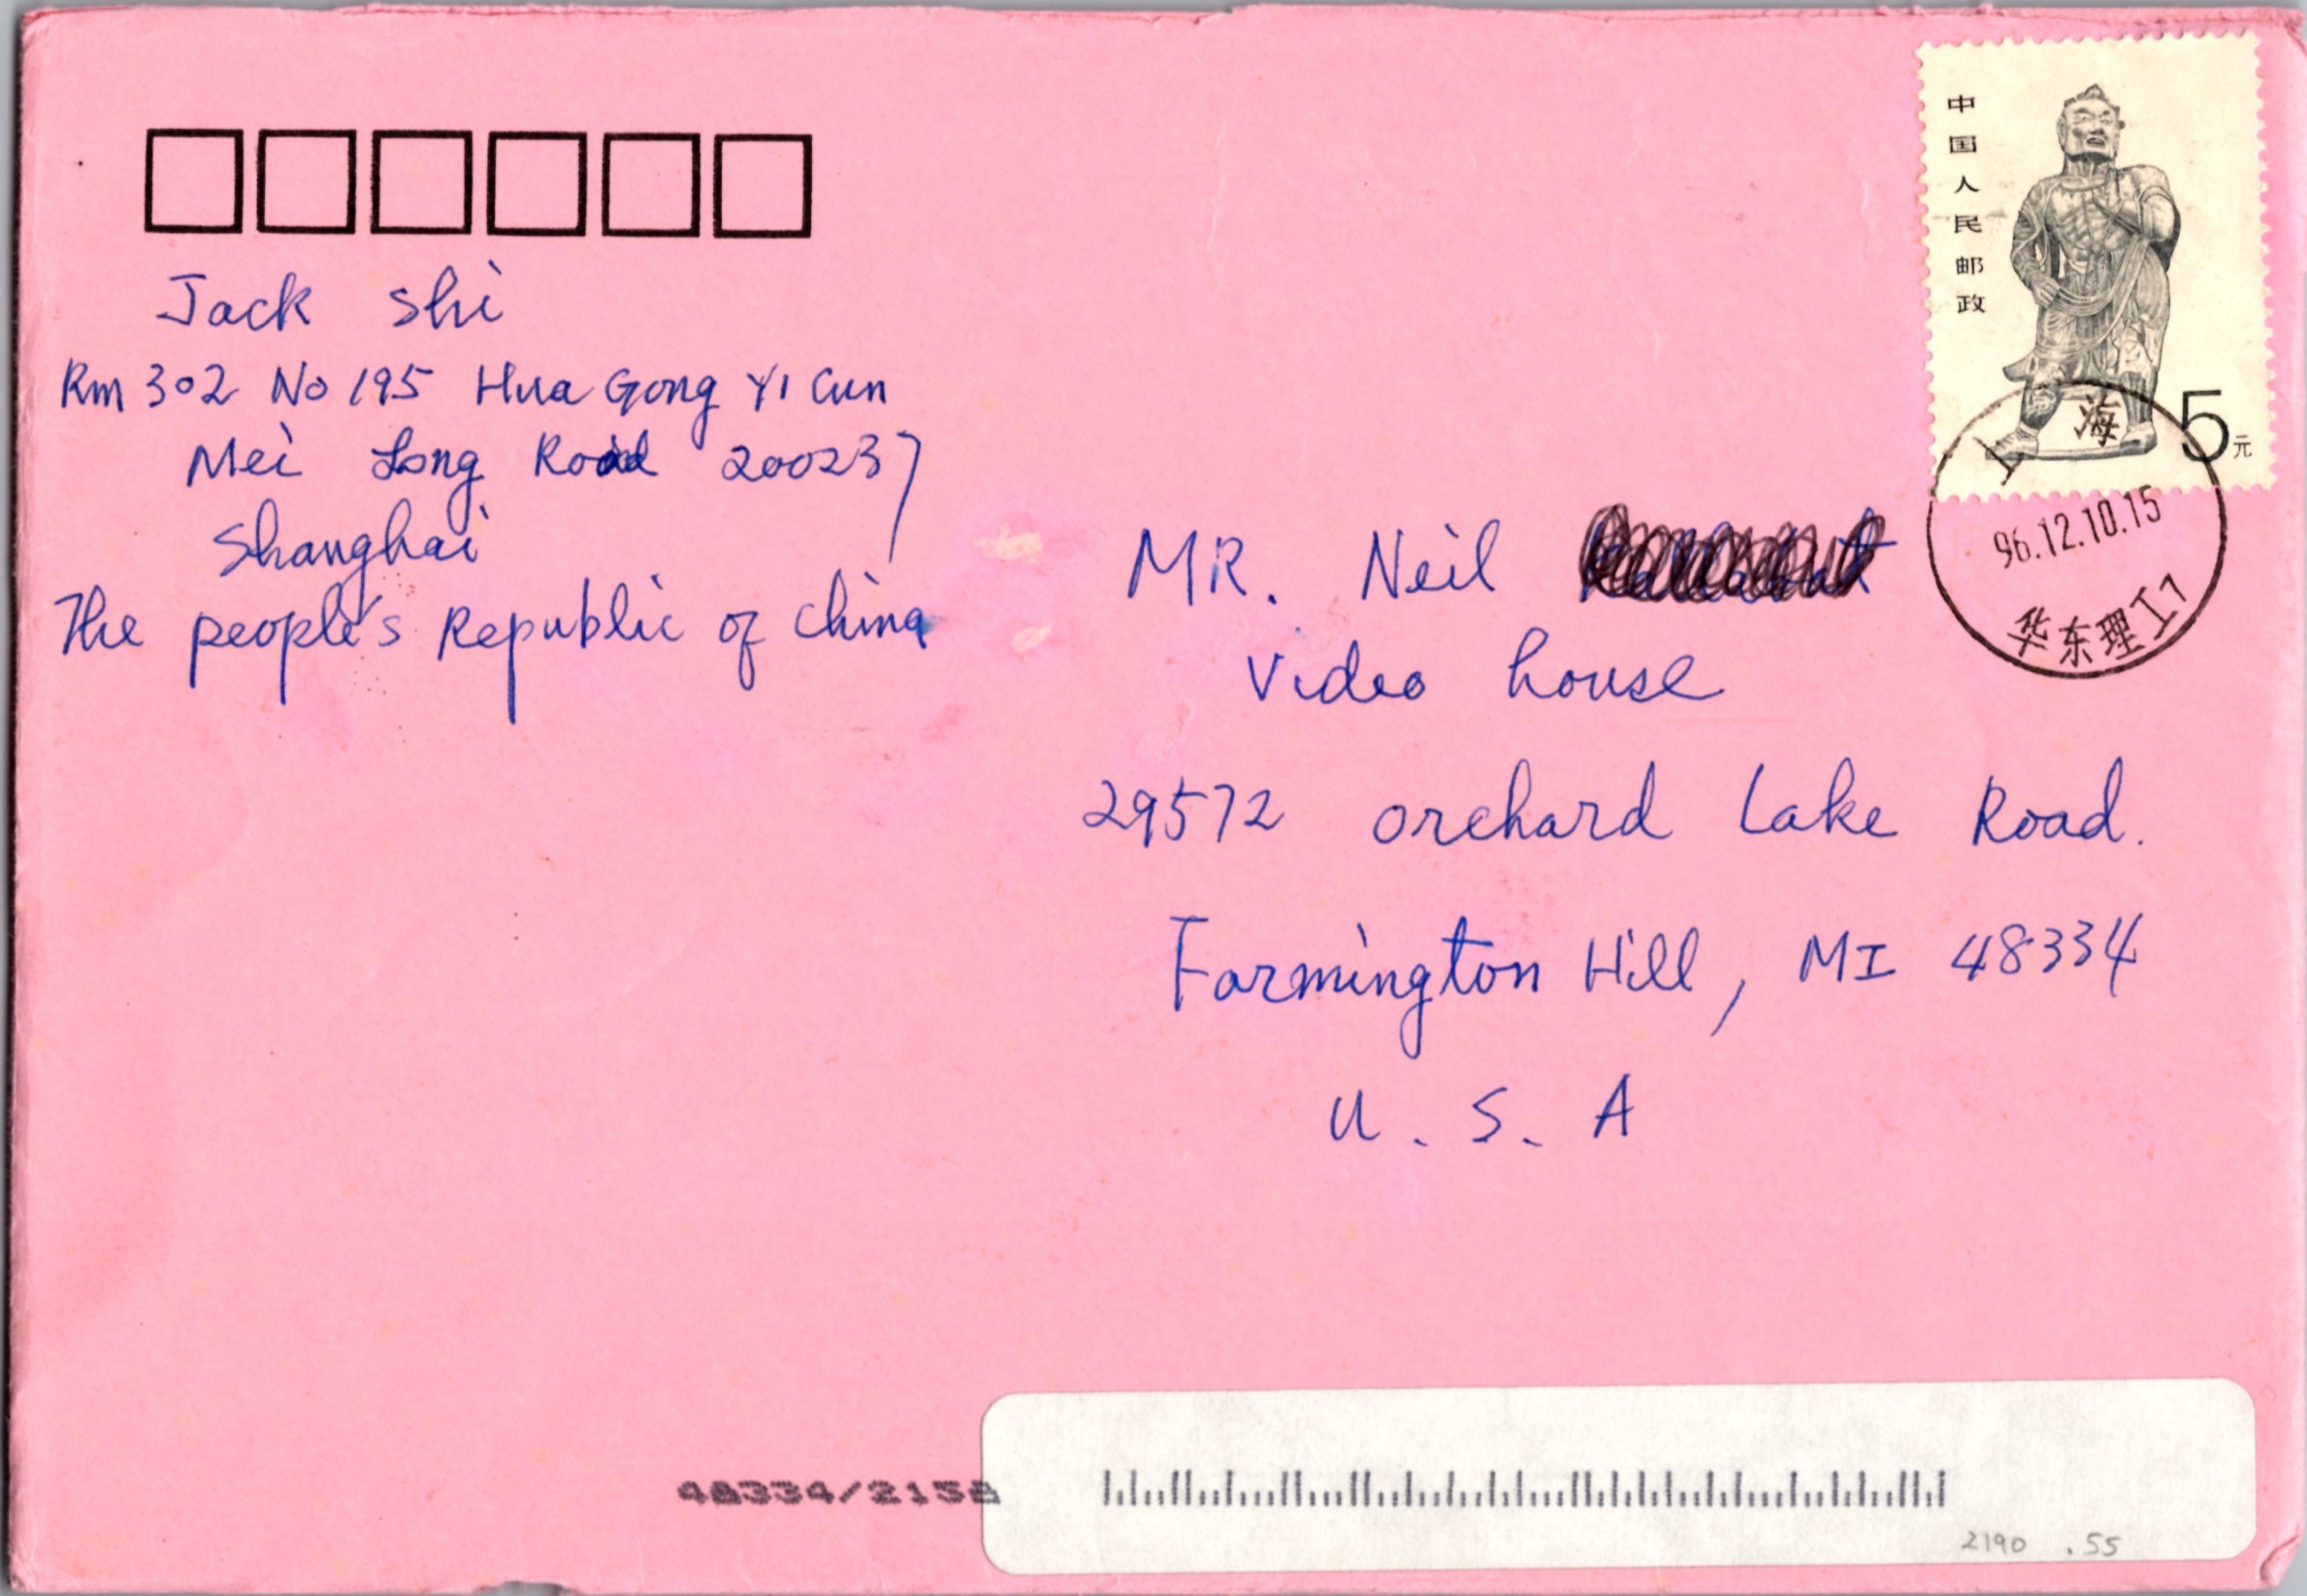 Jack Shi
Rm 302 No 195 Hua Gong Yi Cun
Mei Long Road 200237
Shanghai
The people's Republic of China
中国人民邮政
5元
上海
96.12.10.15
华东理工
MR. Neil
Video house
29572 Orchard Lake Road.
Farmington Hill, MI 48334
U. S. A
48334/2158
2190 .55